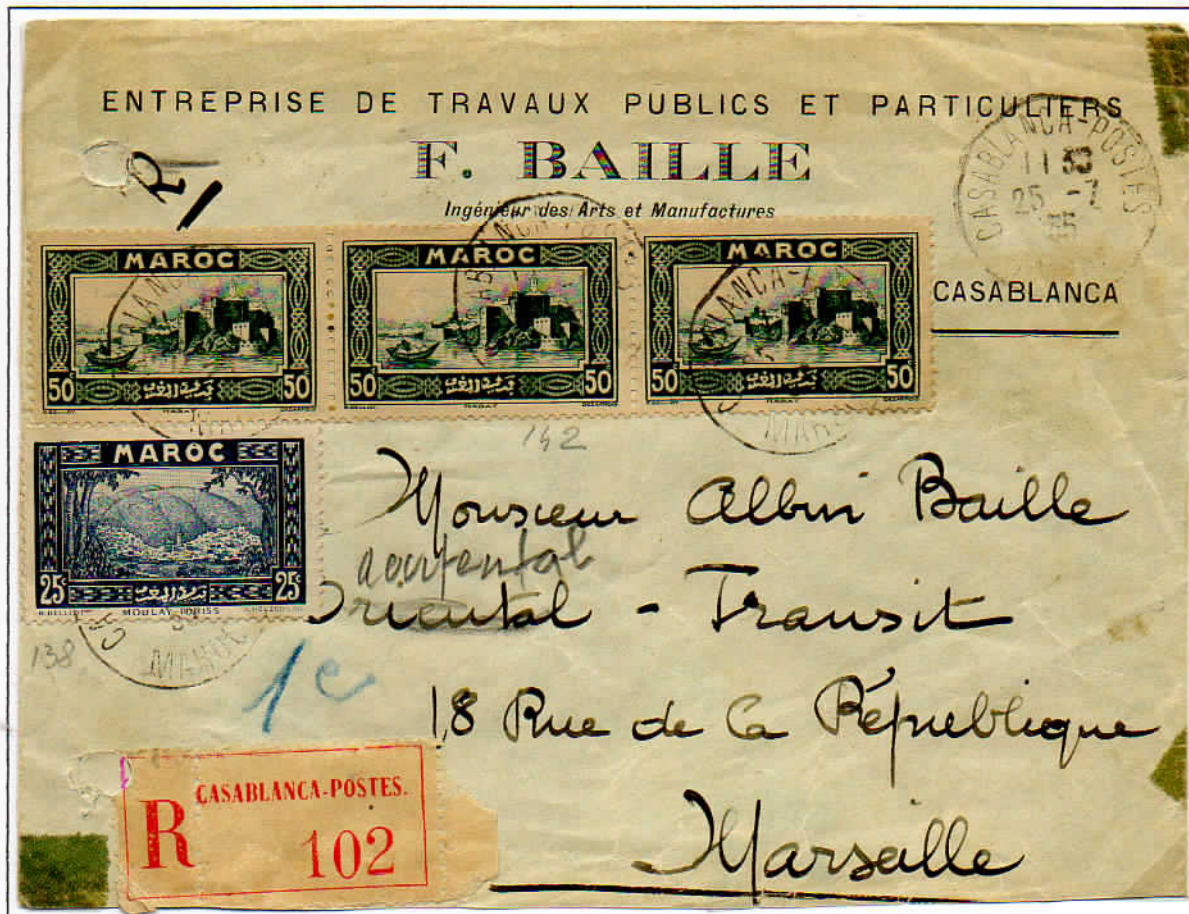 ENTREPRISE DE TRAVAUX PUBLICS ET PARTICULIERS
F. BAILLE
Ingénieur des Arts et Manufactures
CASABLANCA
CASABLANCA-POSTES
11 30
25 -7
35
R
MAROC
50 50
RABAT
MAROC
50 50
RABAT
MAROC
50c 50
RABAT
MAROC
25c 25c
MOULAY-IDRISS
MAROC
MAROC
142
138
Monsieur Albin Baille
occidental
Oriental - Transit
1c
18 Rue de la République
Marseille
CASABLANCA-POSTES.
R 102